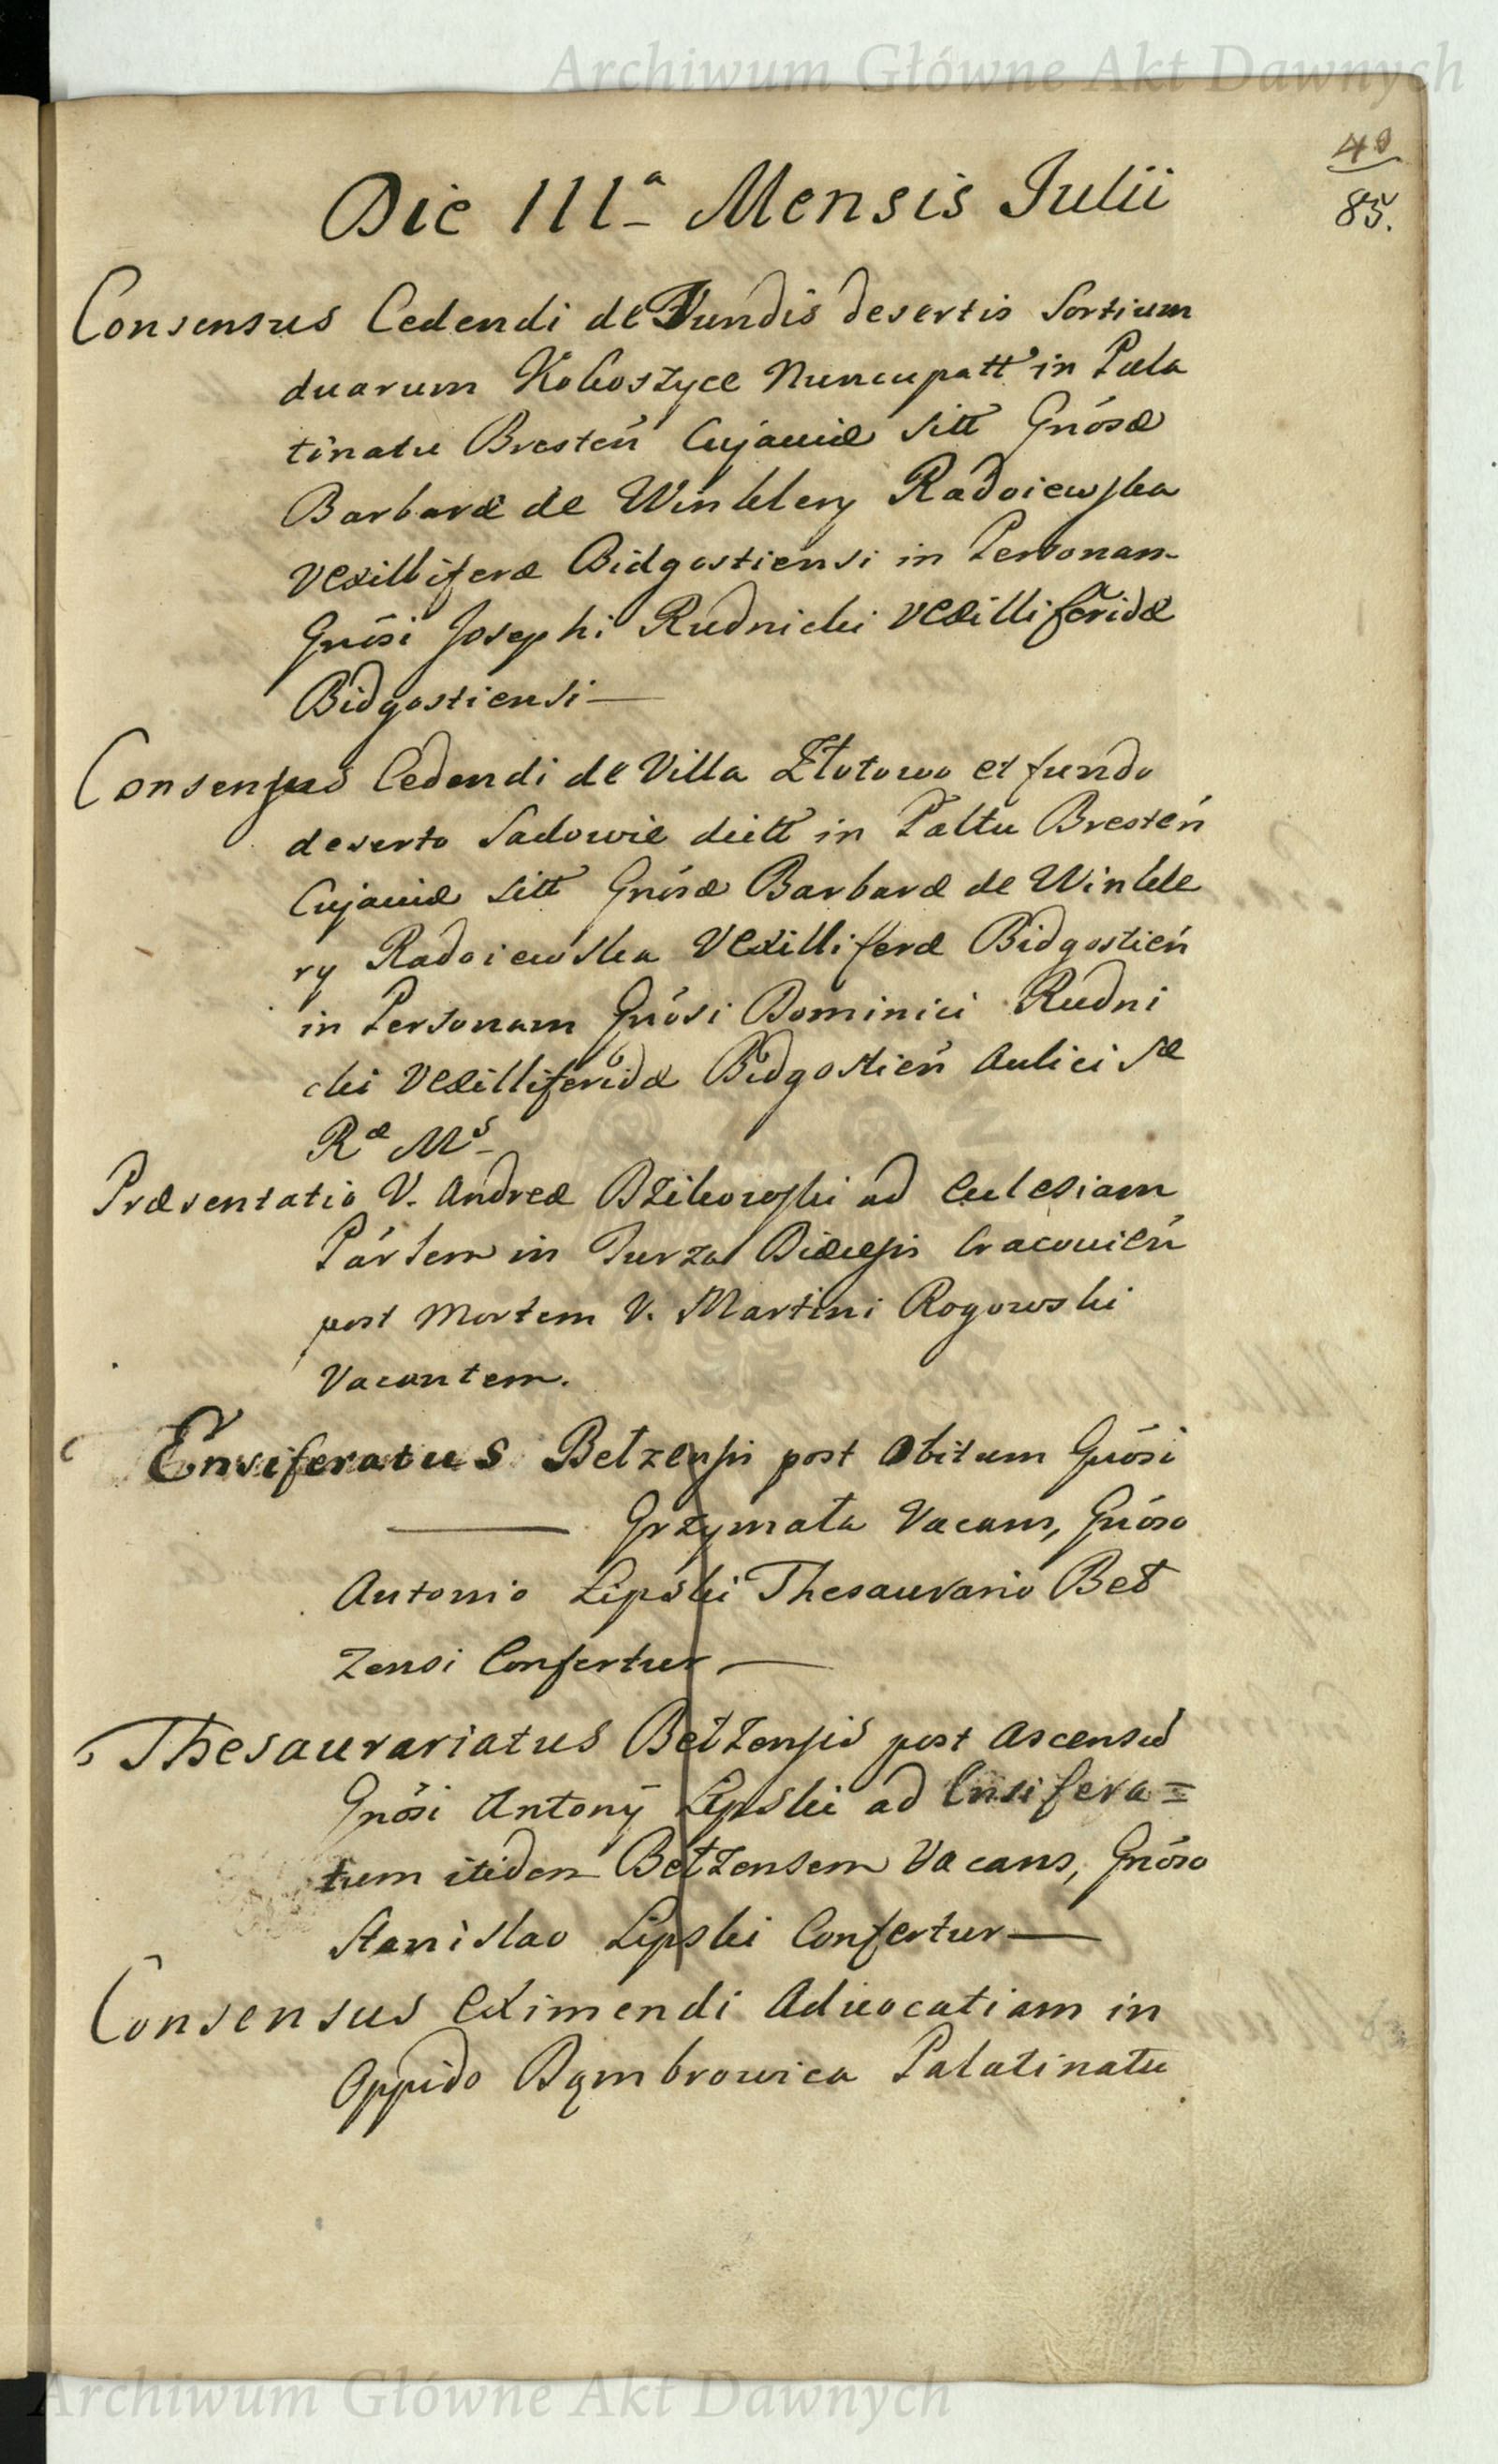 Archiwum Główne Akt Dawnych
49
85.
Die IIIª Mensis Julii
Consensus Cedendi de Fundis desertis Sortium
duarum Kokoszyce Nuncupatt in Pala
tinatu Bresteń Cujaviæ sitt Gnósæ
Barbaræ de Winklery Radoiewska
Vexilliferæ Bidgostiensi in Personam
Gnōsi Josephi Rudnicki Vexilliferidæ
Bidgostiensi —
Consensus Cedendi de Villa Złotowo et fundo
deserto Sadowie dictt in Paltu Bresteń
Cujaviæ sitt Gnósæ Barbaræ de Winkle
ry Radoiewska Vexilliferæ Bidgostień
in Personam Gnósi Dominici Rudni
cki Vexilliferidæ Bidgostień Aulici Sæ
Ræ Mˢ
Præsentatio V. Andreæ Dzikowski ad Ecclesiam
Párlem in Turza Diæcesis Cracovień
post Mortem V. Martini Rogowski
Vacantem.
Ensiferatus Bełzensis post Obitum Gnósi
— Grzymała Vacans, Gnóso
Antonio Lipski Thesaurario Beł
zensi Confertur —
Thesaurariatus Bełzensis post Ascensũ
Gnósi Antonÿ Lipski ad Ensifera=
tum itidem Bełzensem Vacans, Gnóso
Stanislao Lipski Confertur —
Consensus Eximendi Advocatiam in
Oppido Dąmbrowica Palatinatu
Archiwum Główne Akt Dawnych